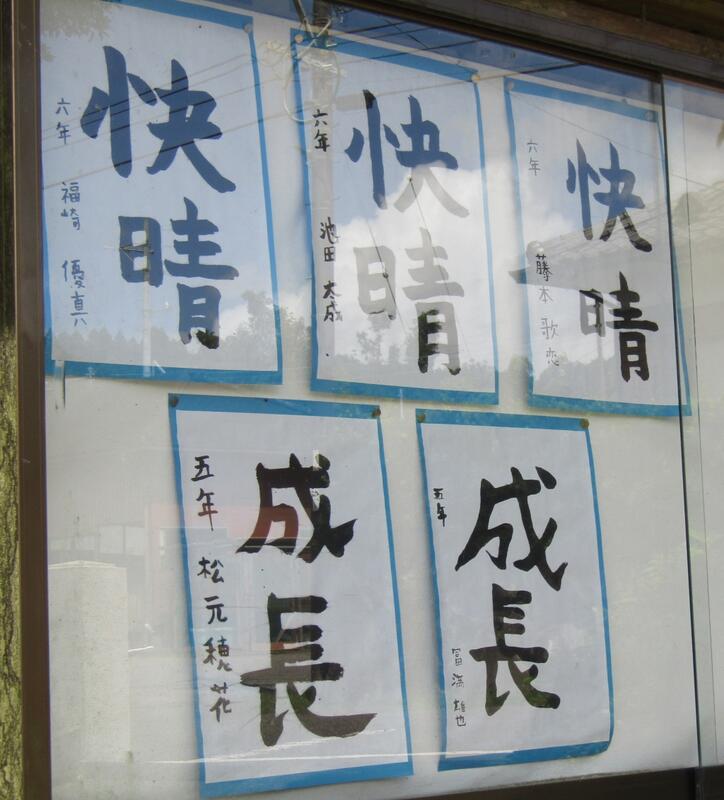 快晴
六年 福崎 優真
快晴
六年 池田 大成
快晴
六年 藤本 歌恋
成長
五年 松元穂花
成長
五年 冨満 雄也